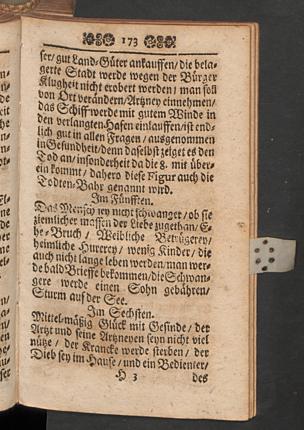 173
ser/ gut Land-Güter ankauffen/ die bela-
gerte Stadt werde wegen der Bürger
Klugheit nicht erobert werden/ man soll
von Ort verändern/ Artzney einnehmen/
das Schiff werde mit gutem Winde in
den verlangten Hafen einlauffen/ ist end-
lich gut in allen Fragen/ ausgenommen
in Gesundheit/ denn daselbst zeiget es den
Tod an/ insonderheit da die 8. mit über-
ein kommt/ dahero diese Figur auch die
Todten-Bahr genannt wird.
Im Fünfften.
Das Mensch sey nicht schwanger/ ob sie
ziemlicher massen der Liebe zugethan/ E-
he-Bruch/ Weibliche Betrügerey/
heimliche Hurerey/ wenig Kinder/ die
auch nicht lange leben werden/ man wer-
de bald Brieffe bekommen/ die Schwan-
gere werde einen Sohn gebähren/
Sturm auf der See.
Im Sechsten.
Mittel-mäßig Glück mit Gesinde/ der
Artzt und seine Artzneyen seyn nicht viel
nütze/ der Krancke werde sterben/ der
Dieb sey im Hause/ und ein Bedienter/
H 3 des